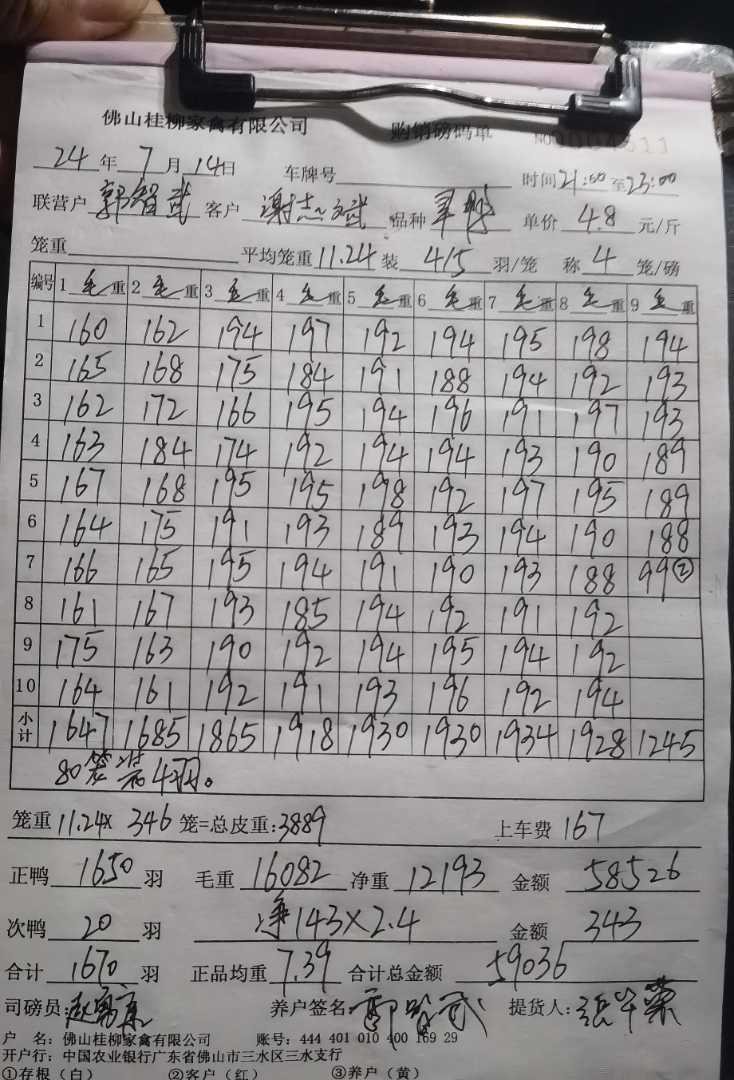 佛山桂柳家禽有限公司 购销磅码单 NO
24年7月14日 车牌号 时间21:00至23:00
联营户 郭智武 客户 谢志斌 品种 单价 4.8 元/斤
笼重 平均笼重11.24装 4/5 羽/笼 称 4 笼/磅
编号 1毛重 2毛重 3毛重 4毛重 5毛重 6毛重 7毛重 8毛重 9毛重
1 160 162 194 197 192 194 195 198 194
2 165 168 175 184 191 188 194 192 193
3 162 172 166 195 194 196 191 197 193
4 163 184 174 192 194 194 193 190 189
5 167 168 195 195 198 192 197 195 189
6 164 175 191 193 189 193 194 190 188
7 166 165 195 194 191 190 193 188 99②
8 161 167 193 185 194 192 191 192
9 175 163 190 192 194 195 194 192
10 164 161 192 191 193 196 192 194
小计 1647 1685 1865 1918 1930 1930 1934 1928 1245
80笼装4羽。
笼重11.24× 346 笼=总皮重:3889 上车费 167
正鸭 1650 羽 毛重 16082 净重 12193 金额 58526
次鸭 20 羽 净143×2.4 金额 343
合计 1670 羽 正品均重 7.39 合计总金额 59036
司磅员: 养户签名 郭智武 提货人:
户 名: 佛山桂柳家禽有限公司 账号: 444 401 010 400 169 29
开户行: 中国农业银行广东省佛山市三水区三水支行
①存根(白) ②客户(红) ③养户(黄)